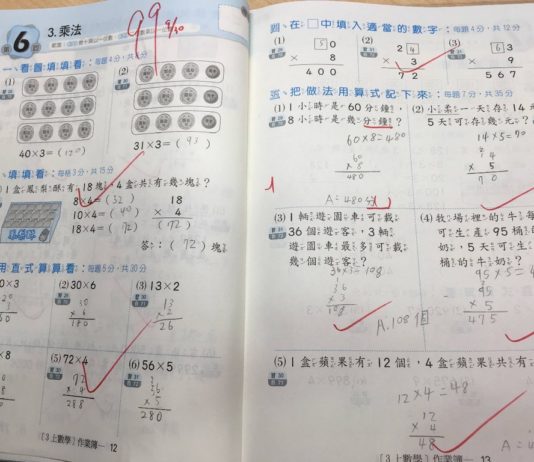 第6回
3.乘法
99
9/30
一 看圖填填看:每題4分,共8分
(1)
(2)
40×3=(120)
31×3=(93)
填填看:每格3分,共15分
1盒鳳梨酥有18塊,4盒共有幾塊?
8×4=(32)
10×4=(40)
18×4=(72)
18
× 4
(72)
答:(72)塊
用直式算算看:每題5分,共30分
0×3
(2) 30×6
30
× 6
180
(3) 13×2
13
× 2
26
×8
(5) 72×4
72
× 4
288
(6) 56×5
56
× 5
280
【3上數學】作業簿— 12
四 在□中填入適當的數字:每題4分,共12分
(1)
50
× 8
400
(2)
24
× 3
72
(3)
63
× 9
567
五 把做法用算式記下來:每題7分,共35分
(1) 1小時是60分鐘,
8小時是幾分鐘?
60×8=480
60
× 8
480
A=480分
(2) 小柔一天存14元
5天可存幾元?
14×5=70
14
× 5
70
(3) 1輛遊園車可載
36個遊客,3輛
遊園車最多可載
幾個遊客?
36×3=108
36
× 3
108
A.108個
(4) 牧場裡的牛每
可生產95桶的
奶,5天可生
桶的牛奶?
95×5=4
95
× 5
475
(5) 1盒蘋果有12個,4盒蘋果共有
12×4=48
12
× 4
48
A=4
【3上數學】作業簿— 13